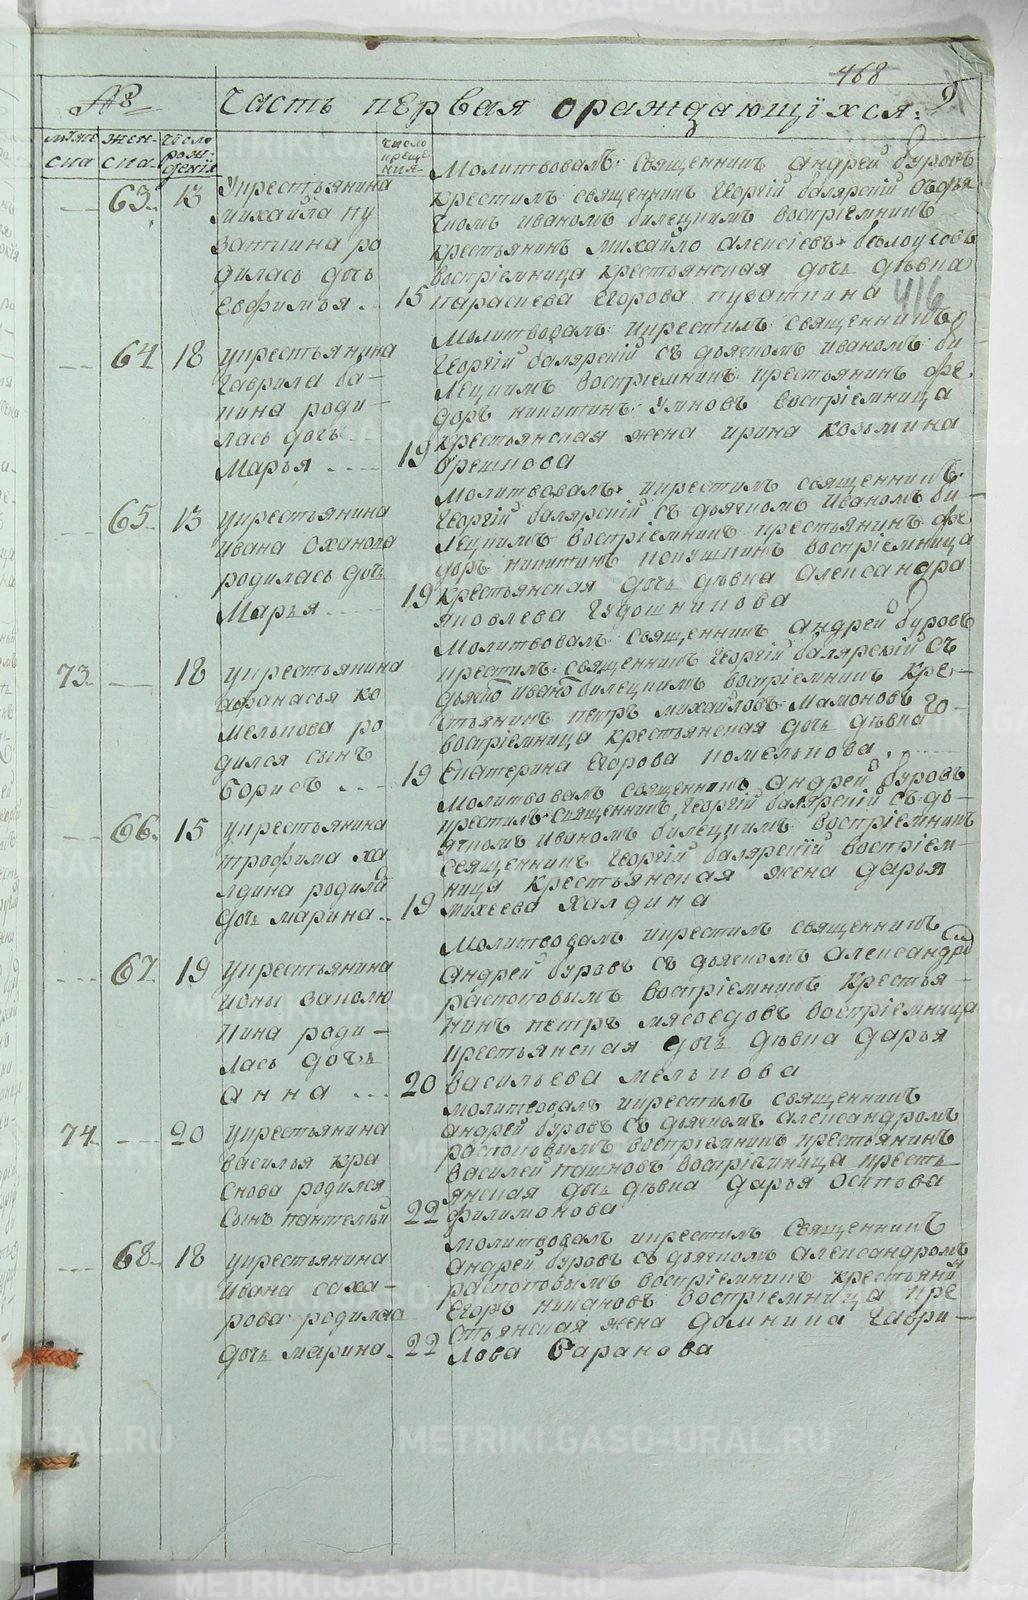 468
№
Часть первая ораждающихся:
9
мужеска
женска
число рождения
число крещения
63 13 Укрестьянина
михайла пу
заткина ро
дилась дочь
Евфимья 15
Молитвовалъ священникъ андрей буровъ
крестилъ священникъ Георгій балярскій съ дья
комъ иваномъ билецкимъ воспріемникъ
крестьянинъ михайло алексіевъ белоусовъ
воспріемница крестьянская дочь девка
параскева Егорова пузаткина
416
64 18 укрестьянина
гаврила ба-
кина роди-
лась дочь
Марья 19
Молитвовалъ икрестилъ священникъ
Георгій балярскій съ дьячкомъ иваномъ би
лецкимъ воспріемникъ крестьянинъ фе
доръ никитинъ Умновъ воспріемница
крестьянская жена ирина козьмина
орешкова
65 13 укрестьянина
ивана оханова
родилась дочь
Марья 19
Молитвовалъ икрестилъ священникъ
Георгій балярскій съ дьячкомъ иваномъ би-
лецкимъ воспріемникъ крестьянинъ фе
доръ никитинъ кокушкинъ воспріемница
крестьянская дочь девка александра
яковлева гудошникова
73 18 укрестьянина
афанасья ко
мелькова ро
дился сынъ
борисъ 19
Молитвовалъ священникъ андрей буровъ
крестилъ священникъ Георгій балярскій съ
дьячко ивано билецкимъ воспріемникъ кре-
стьянинъ петръ михайловъ мамоновъ
воспріемница крестьянская дочь девка
Екатерина Егорова комелькова
66 15 укрестьянина
трофима ха
лдина родила
дочь марина 19
Молитвовалъ священникъ андрей буровъ
крестилъ священникъ Георгій балярскій съ дь-
ячкомъ иваномъ билецкимъ воспріемникъ
священникъ Георгій балярскій воспріем-
ница крестьянская жена дарья
михеева халдина
67 19 укрестьянина
ионы заколю
кина роди-
лась дочь
анна 20
Молитвовалъ икрестилъ священникъ
андрей буровъ съ дьячкомъ александро
распоповымъ воспріемникъ крестья-
нинъ петръ мясоедовъ воспріемница
крестьянская дочь девка дарья
васильева мелькова
74 20 укрестьянина
василья кра
снова родился
сынъ пантелей 22
молитвовалъ икрестилъ священникъ
андрей буровъ съ дьячкомъ александромъ
распоповымъ воспріемникъ крестьянинъ
василей пашковъ воспріемница кресть
янская дочь девка дарья осипова
филимонова
68 18 укрестьянина
ивана саха-
рова родилась
дочь марина 22
молитвовалъ икрестилъ священникъ
андрей буровъ съ дьячкомъ александромъ
распоповымъ воспріемникъ крестьянинъ
Егоръ никановъ воспріемница кре
стьянская жена домника гаври-
лова Саранова
METRIKI.GASO-URAL.RU